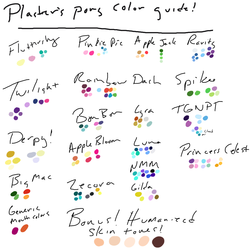 Placker's pony color guide!
Fluttershy Pinkie Pie Apple Jack Rarity
Twilight Rainbow Dash Spike
BonBon Lyra TGNPT
Derpy! Apple Bloom Luna Princess Celest
Big Mac Zecora Gilda
Generic
Bonus! Humanized
skin tones!